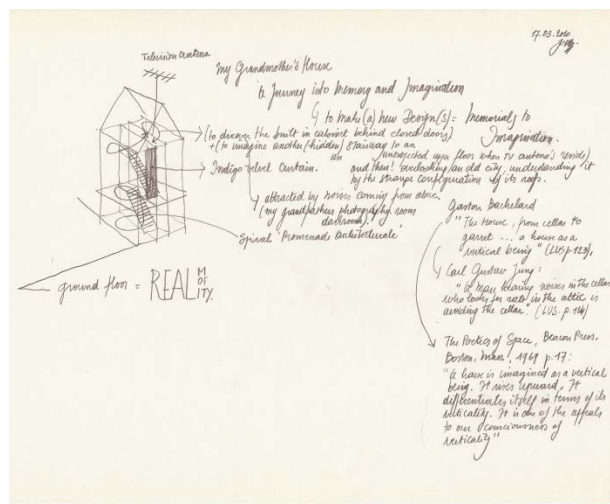 17.03.2010
Television antena
my Grandmother's House
a Journey into Memory and Imagination
↳ to make (a) new Design(s) = Memorials to Imagination.
(to discover the built in cabinet behind closed doors)
+ (to imagine another (hidden) stairway to an
unexpected upper floor where TV antena's reside)
Indigo velvet curtain.
and then! overlooking an old city, understanding it
by the strange configuration of its roofs.
attracted by noises coming from above.
(my grandfathers photography room
darkroom)
Spiral 'Promenade Architecturale'
ground floor = REALM OF
REALITY.
Gaston Bachelard
"The House, from cellar to
garret ... a house as a
vertical being" (LUS p.123),
Carl Gustav Jung:
"a man hearing noises in the cellar
who looks for rats in the attic is
avoiding the cellar." (LUS. p.124)
The Poetics of Space, Beacon Press.
Boston, Mass, 1969 p.17:
"a house is imagined as a vertical
being. It rises upward. It
differentiates itself in terms of its
verticality. It is one of the appeals
to our consciousness of
verticality"